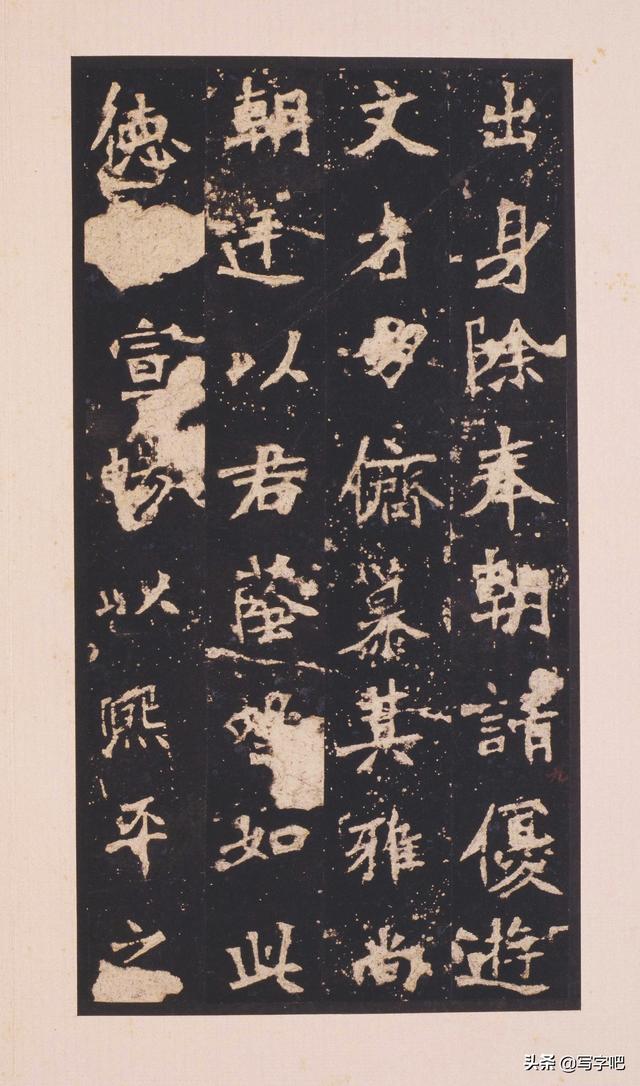 出身除奉朝請優遊
文朋儕慕其雅尚
朝廷以君蔭望如此
德宣暢以熙平之
头条 @写字吧